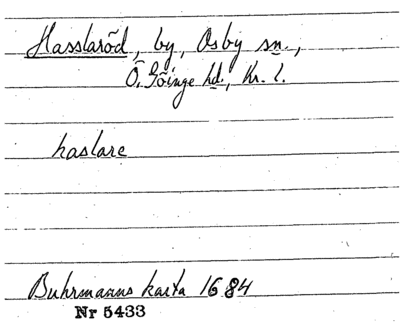 Hasslaröd, by, Osby sn.,
Ö. Göinge hd., Kr. l.
haslare
Buhrmanns karta 1684
Nr 5433